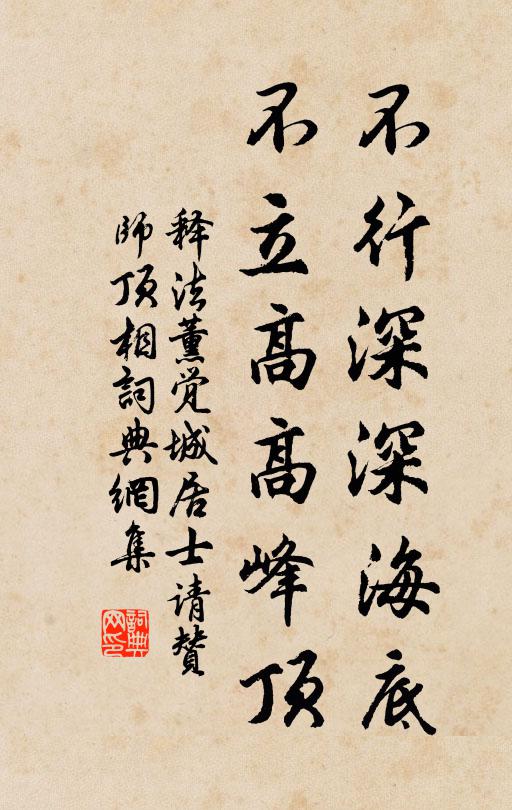 不行深深海底
不立高高峰顶
释法薰觉城居士请赞
师顶相詞典網集
詞典网印